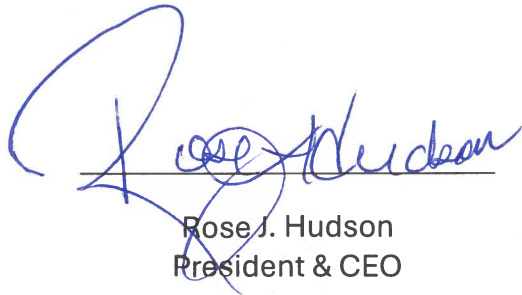 Rose J Hudson
Rose J. Hudson
President & CEO